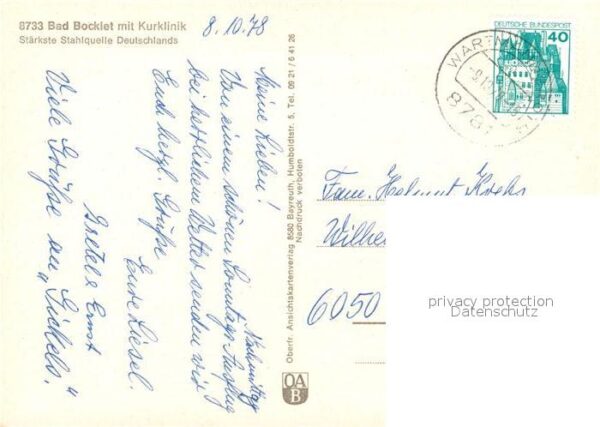 8733 Bad Bocklet mit Kurklinik
Stärkste Stahlquelle Deutschlands
8.10.78
Meine Lieben!
Von einem schönen Sonntag Nachmittag
Ausflug
bei herrlichen Wetter senden wir
Euch herzl. Grüße
Eure Liesel.
Gretel + Ernst
Viele Grüße an "Gickels."
Oberfr. Ansichtskartenverlag 8580 Bayreuth, Humboldtstr. 5, Tel. 09 21 / 6 41 26
Nachdruck verboten
OA
B
DEUTSCHE BUNDESPOST
40
8781
Fam. Helmut Krebs
Wilhe
6050
privacy protection
Datenschutz